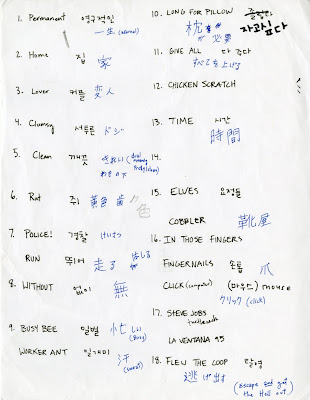 1. Permanent 영구적인
一生 (eternal)
2. Home 집 家
3. Lover 커플 変人
4. Clumsy 서투른 ドジ
5. Clean 깨끗 きれい
6. Rat 쥐 黄色 歯
色
7. POLICE! 경찰 けいさつ
RUN 뛰어 走る はしる
8. WITHOUT 없이 無
9. BUSY BEE 일벌 忙しい
(Busy)
WORKER ANT 일개미 汗
(sweat)
10. LONG FOR PILLOW
자고싶다
枕を
必要
11. GIVE ALL 다 준다
すべてを上げる
12. CHICKEN SCRATCH
13. TIME 시간
時間
14.
15. ELVES 요정들
COBBLER 靴屋
16. IN THOSE FINGERS
FINGERNAILS 손톱 爪
CLICK (computer) (마우드) mouse
クリック (click)
17. STEVE JOBS
turtleneck
LA VENTANA 95
18. FLEW THE COOP 탈영
逃げ出す
(escape and get
the Hell out)